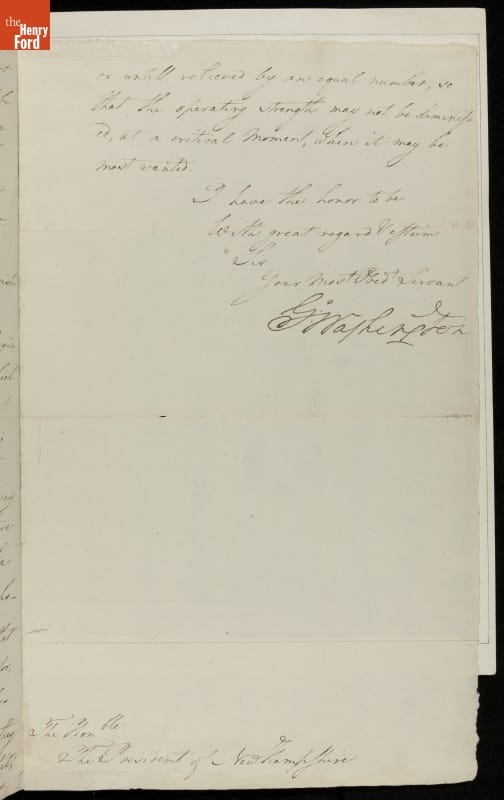 the
Henry
Ford
or untill relieved by an equal number, so
that the operating strength may not be diminish
ed, at a critical moment, when it may be
most wanted.
I have the honor to be
With great regard & Esteem
Sir
Your Most Obed.t Servant
G.o Washington
The Hon.ble
The President of New Hampshire